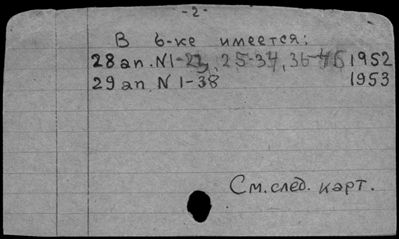 -2-
В б-ке имеется:
28 ап. N1-23, 25-34, 36-46 1952
29 ап. N 1-38 1953
См. след. карт.